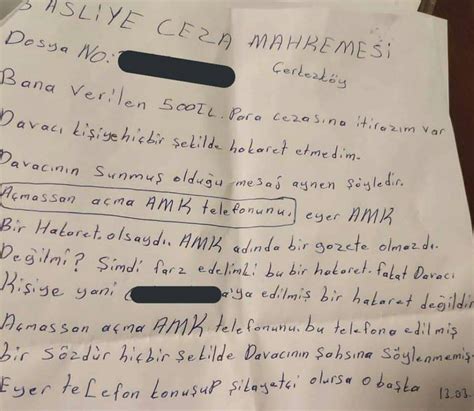 3 ASLİYE CEZA MAHKEMESİ
Dosya No:
Çerkezköy
Bana Verilen 500TL. Para cezasına itirazım var
Davacı kişiye hiçbir şekilde hakaret etmedim.
Davacının Sunmuş olduğu mesaj aynen şöyledir.
Açmassan açma AMK telefonunu, eyer AMK
Bir Hakaret olsaydı, AMK adında bir gazete olmazdı.
Değilmi? Şimdi farz edelimki bu bir hakaret. fakat Davacı
Kişiye yani a'ya edilmiş bir hakaret değildir
Açmassan açma AMK telefonunu, bu telefona edilmiş
bir Sözdür hiçbir şekilde Davacının Şahsına Söylenmemiş
Eyer telefon konuşup şikayetçi olursa o başka
13.03